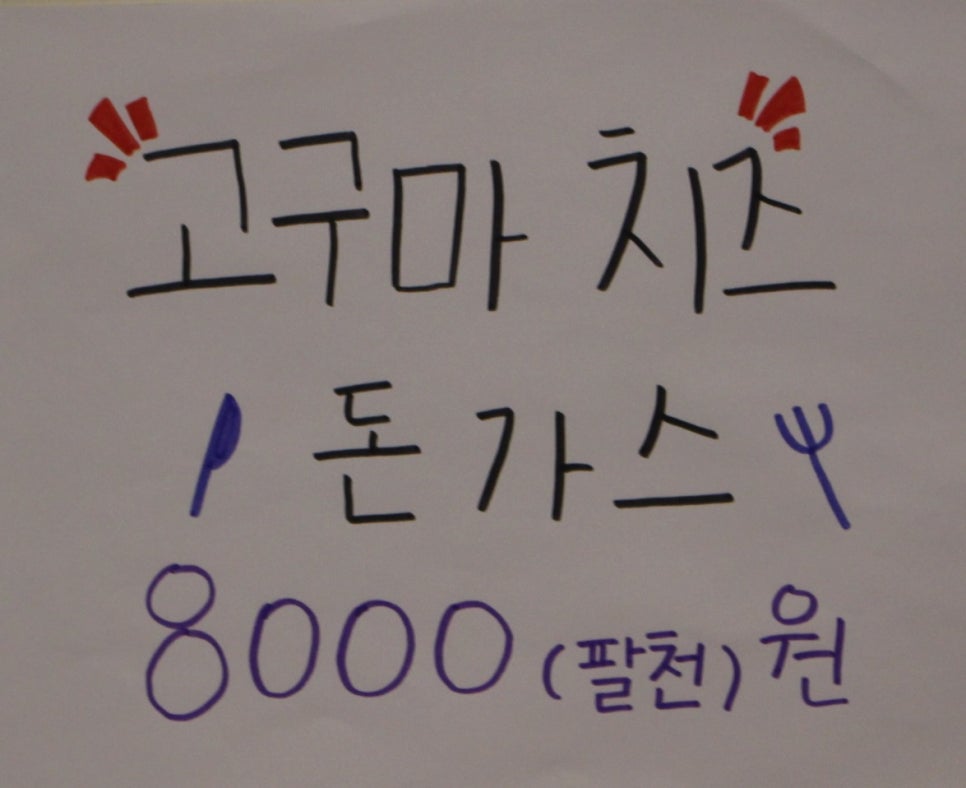 고구마 치즈
돈가스
8000(팔천)원